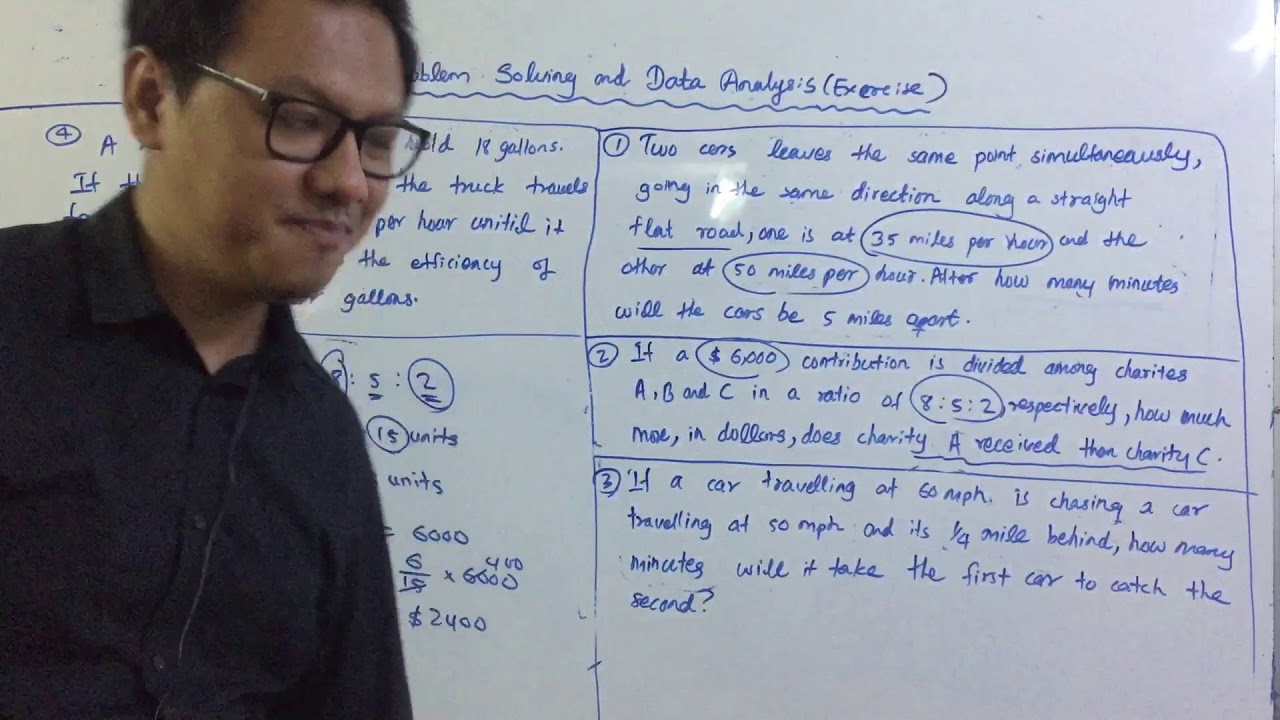 Solving and Data Analysis (Exercise)
④ A 18 gallons.
If the truck travels
per hour unitil it
the efficiency of
gallons.
: 5 : 2
15 units
units
= 6000
6/15 × 6000 400
$ 2400
① Two cars leaves the same point, simultaneously,
going in the same direction along a straight
flat road, one is at 35 miles per hour and the
other at 50 miles per hour. After how many minutes
will the cars be 5 miles apart.
② If a $ 6,000 contribution is divided among charites
A, B and C in a ratio of 8:5:2, respectively, how much
moe, in dollars, does charity A received than charity C.
③ If a car travelling at 60 mph. is chasing a car
travelling at 50 mph and its 1/4 mile behind, how many
minutes will it take the first car to catch the
second?